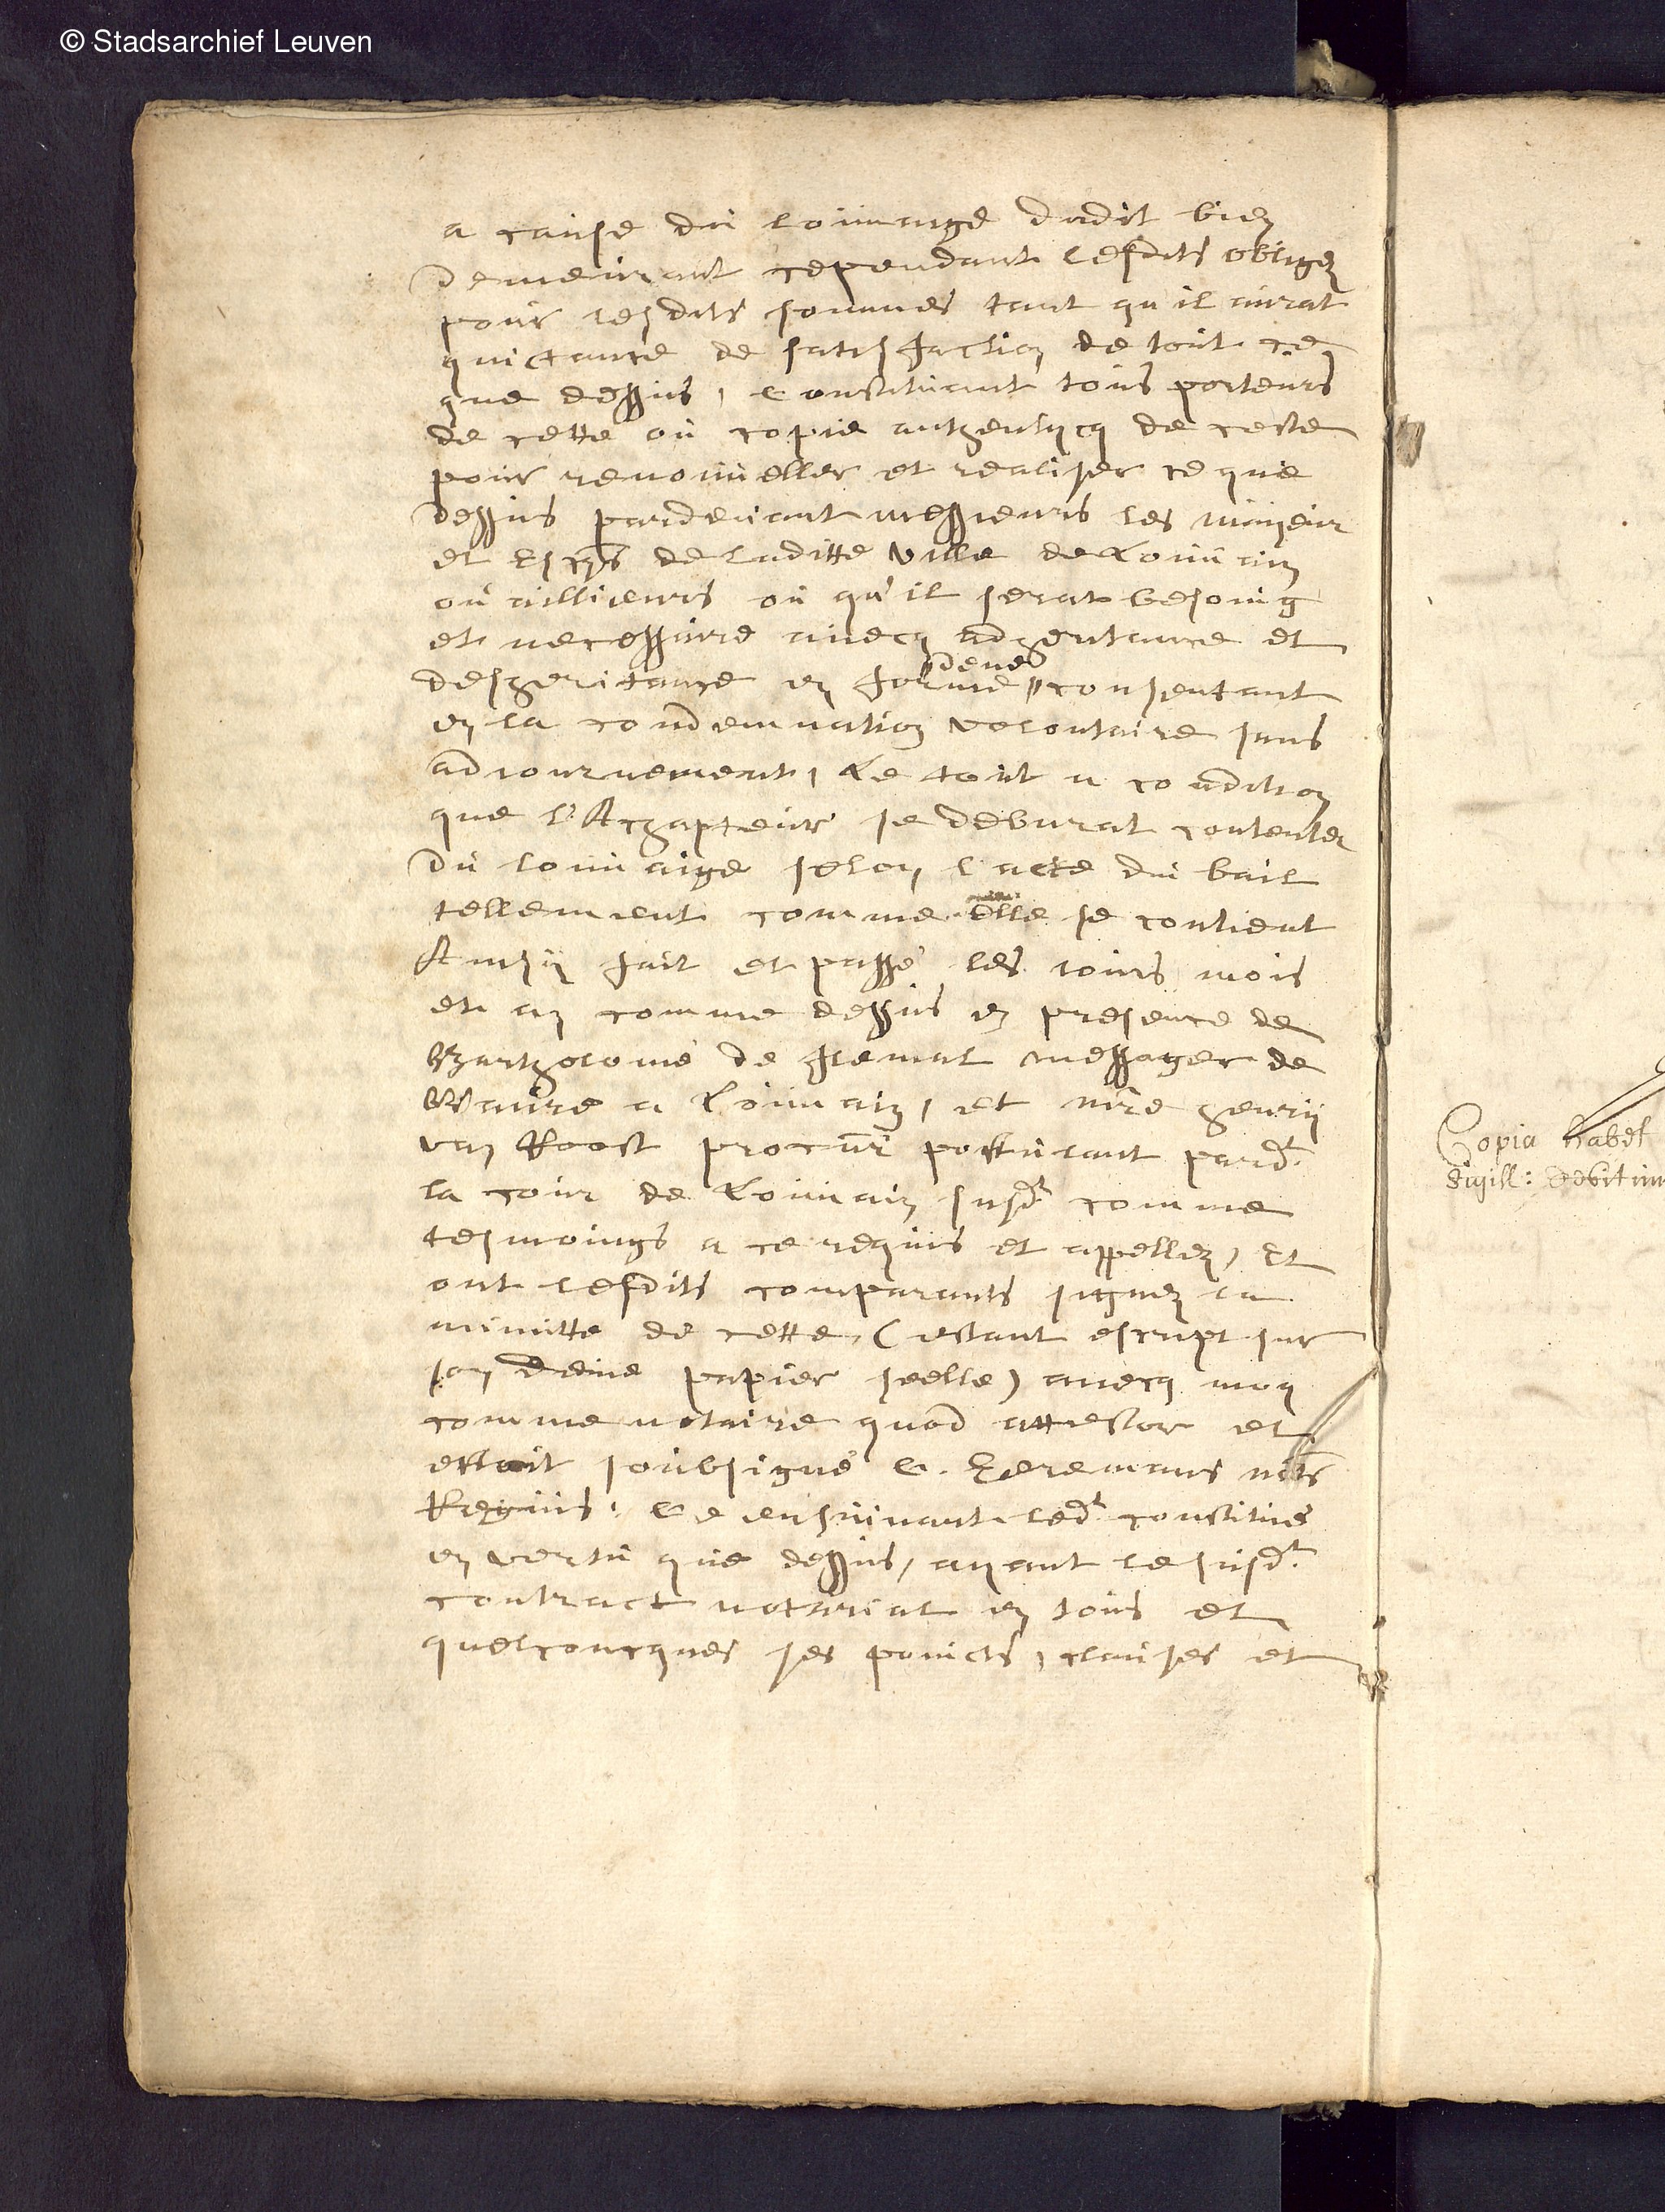 © Stadsarchief Leuven
a cause du louuaige dudit bien
demeurant cependant lesdits obligez
pour lesdits sommes tant qu'il aurat
quictance de satisfaction de tout ce
que dessus, Constituant tous porteurs
de cette ou copie authenticq de ceste
pour renouueller et realiser ce que
dessus pardeuant messieurs les mayeur
et Eschns de laditte Ville de Louuain
ou aillieurs ou qu'il serat besoing
et necessaire auecq adheritance et
desheritance en forme deue consentant
en la condemnation volontaire sans
adiournement, Le tout a condition
que l'Achapteur se deburat contenter
du louuaige selon l'acte du bail
tellement comme elle se contient
Ainsy fait et passé les iours mois
et an comme dessus en presence de
Bartholomé de Flemal messager de
Waure a Louuain, et mre henrij
van Roost procur postulant pardt
la cour de Louuain susdt comme
tesmoings a ce requis et appellez, Et
ont lesdits comparants signez la
minutte de cette, (estant escript sur
son deue papier seelle) auecq moy
comme notaire quod attestor et
estoit soubsigné C. Heremans nots
Regius. Ce ensuiuant ledt constitué
en vertu que dessus, ayant le susdt
contract notarial en tous et
quelconcques ses poincts, clauses et
Copia habet
Sigill: debitum